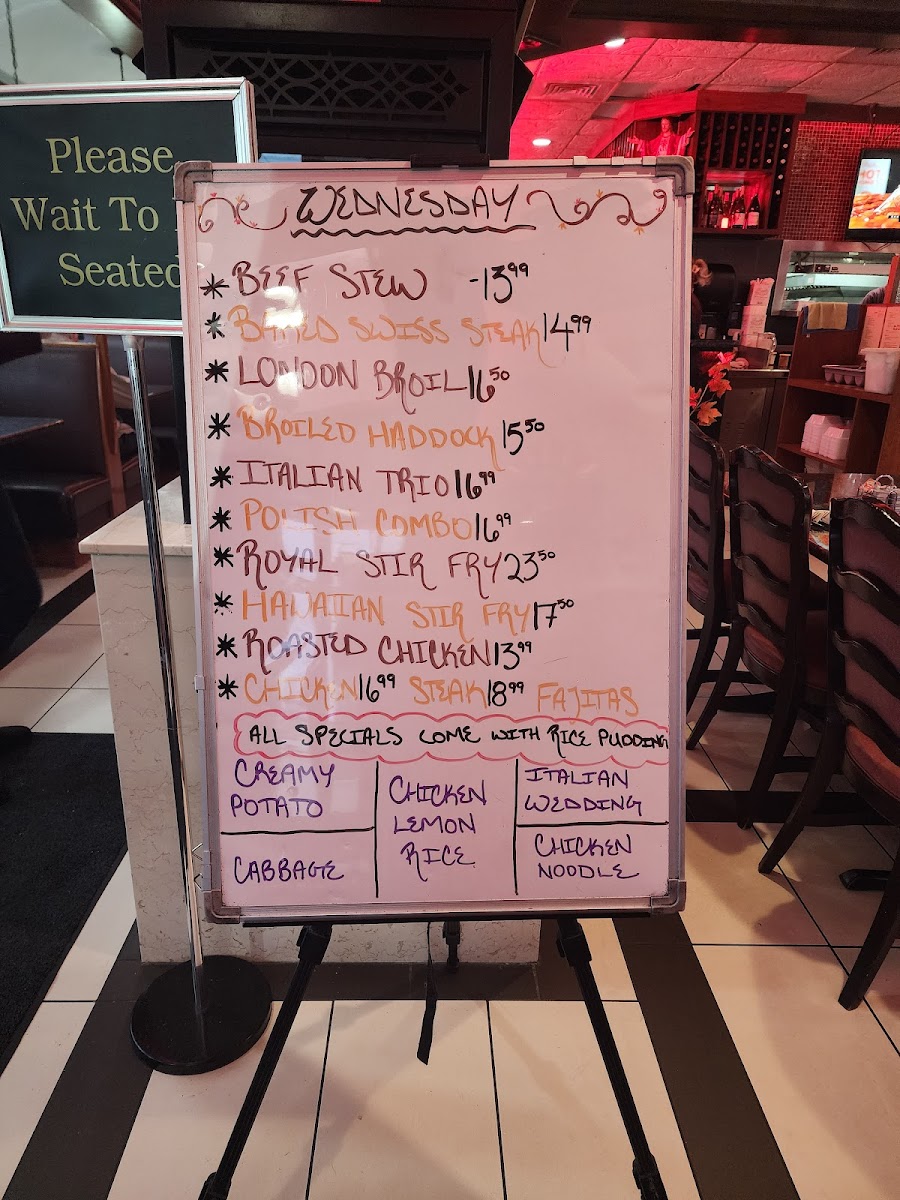 Please
Wait To
Seated
WEDNESDAY
* BEEF STEW -13.99
* BAKED SWISS STEAK 14.99
* LONDON BROIL 16.50
* BROILED HADDOCK 15.50
* ITALIAN TRIO 16.99
* POLISH COMBO 16.99
* ROYAL STIR FRY 23.50
* HAWAIIAN STIR FRY 17.50
* ROASTED CHICKEN 13.99
* CHICKEN 16.99 STEAK 18.99 FAJITAS
ALL SPECIALS COME WITH RICE PUDDING
CREAMY
POTATO
CABBAGE
CHICKEN
LEMON
RICE
ITALIAN
WEDDING
CHICKEN
NOODLE